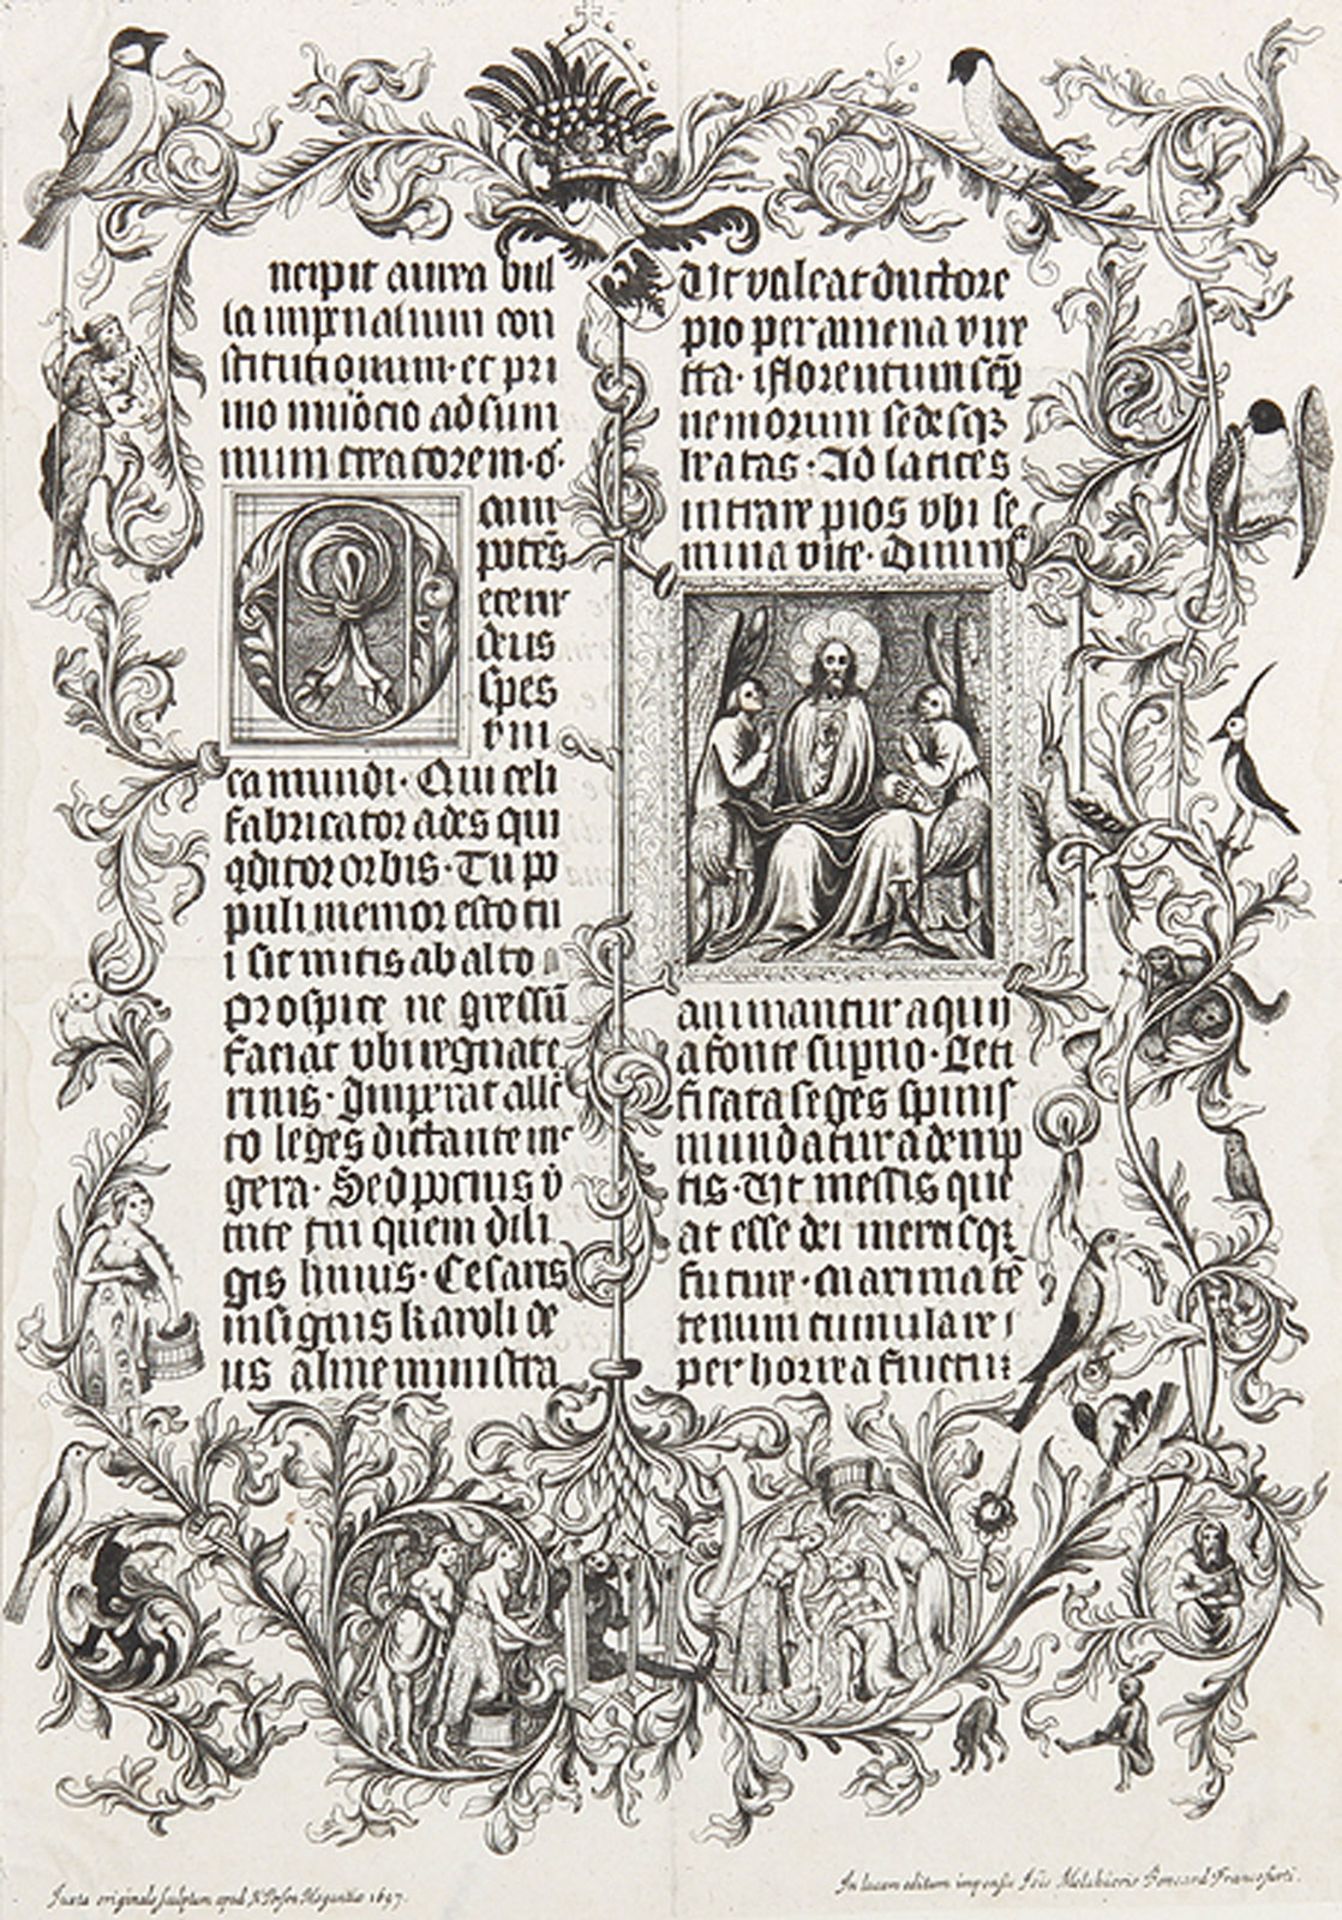 ncipit aurea bul
la imperialium con
stitutionum · et pri
mo inuocio ad sum
mum creatorem · o ·
mni
potēs
eterne
deus
spes
vni
ca mundi · Qui celi
fabricator ades qui
qditor orbis · Tu po
puli memor esto tu
i sic mitis ab alto
prospice ne gressū
faciat vbi regnat e
rinis · Imperat allē
to leges dictante me
gera · Sed pocius v̄
tute tui quem dili
gis huius · Cesaris
insignis karoli de
us alme ministra
Vt valeat ductore
pio per amena vire
cta · florentum sēp
nemorum sedesqz
beatas · Ad latices
intrare pios vbi se
mina vite · Diuinis
animantur aquis
a fonte supno · Leti
ficata seges spinis
mundatur ademp
tis · Vt messis que
at esse dei mercisqz
future · Maxima cē
tenum cumulare
per horrea fructuz
Juxta originale sculptum apud N Person Moguntiæ 1697.
In lucem editum impensis Jõis Melchioris Bencard Francofurti.